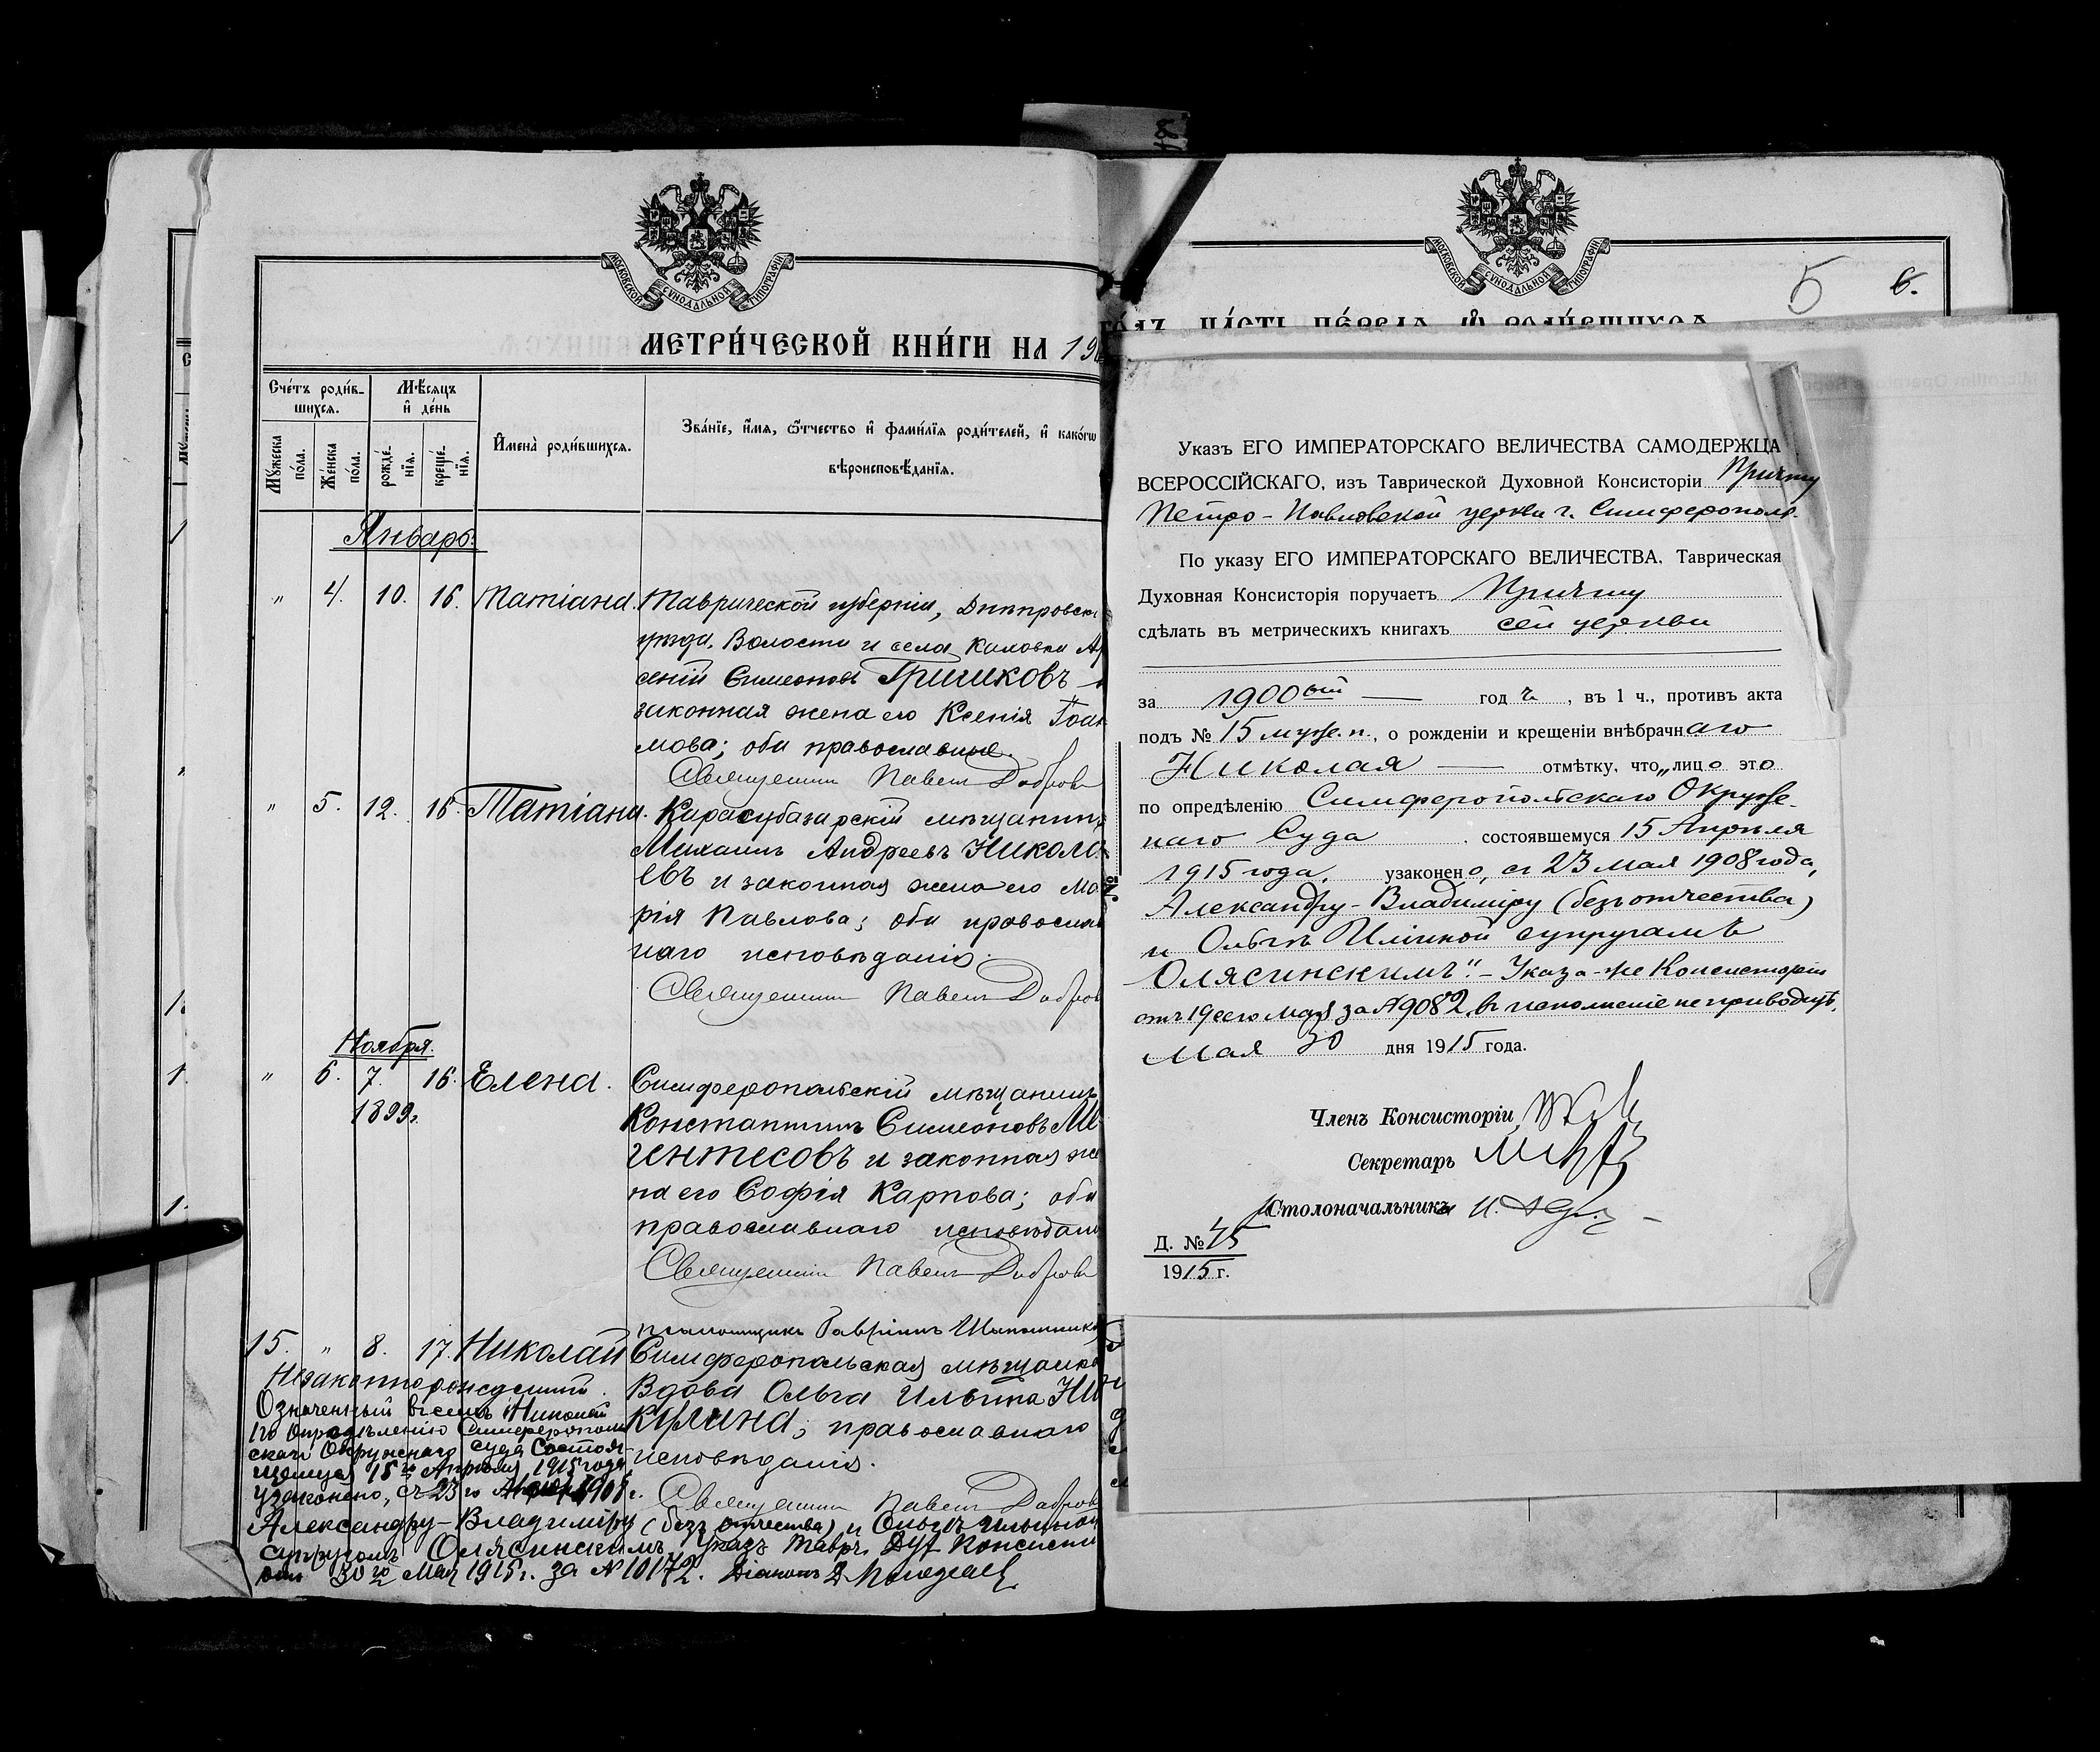 МОСКОВСКОЙ СѴНОДАЛЬНОЙ ТИПОГРАФІИ
МЕТРИ́ЧЕСКОЙ КНИ́ГИ НА 19
Сче́тъ роди́в-
шихсѧ.
Мѣ́сѧцъ
и҆ де́нь
Мꙋ́жеска
по́ла.
Же́нска
по́ла.
рожде́-
нїѧ.
креще́-
нїѧ.
И҆мена̀ роди́вшихсѧ.
Зва́нїе, и҆́мѧ, ѻ҆́тчество и҆ фами́лїѧ роди́телей, и҆ како́гѡ
вѣроисповѣ́данїѧ.
Январь.
" 4. 10. 16. Татіана. Таврической губерніи, Днѣпровск
уѣзда, Волости и села Каловки А
сеній Симеоновъ Гришковъ
законная жена его Ксенія
мова; оба православные.
Священникъ Павелъ Добров
" 5. 12. 16. Татіана. Карасубазарскій мѣщанинъ
Михаилъ Андреевъ Никола
евъ и законная жена его Ма
рія Павлова; оба православ
наго исповѣданія.
Священникъ Павелъ Добров
Ноября.
" 6. 7. 16. Елена. Симферопольскій мѣщанинъ
1899г.
Константинъ Симеоновъ Ме
гентесовъ и законная же
на его Софія Карпова; оба
православнаго исповѣдані
Священникъ Павелъ Добров
псаломщикъ Гавріилъ
15. " 8. 17. Николай Симферопольская мѣщанка
Незаконнорожденный.
Вдова Ольга Ильина Ни
кулина; православнаго
исповѣданія.
Священникъ Павелъ Добров
Означенный въ семъ Николай
по опредѣленію Симферополь
скаго Окружнаго Суда Состоя-
щемуся 15го Апрѣля 1915 года
узаконено, съ 23го 1908 г.
Александру-Владиміру (безъ отчества) и Ольгѣ Ильиной
супругамъ Олясинскимъ. Указъ Тавр. Дух. Консисто
отъ 30го Мая 1915 г. за № 10172. Діаконъ
МОСКОВСКОЙ СѴНОДАЛЬНОЙ ТИПОГРАФІИ
5 6.
ГО́ДЪ, ЧА́СТЬ ПЕ́РВАѦ, Ѡ҆ РОДИ́ВШИХСѦ
Указъ ЕГО ИМПЕРАТОРСКАГО ВЕЛИЧЕСТВА САМОДЕРЖЦА
ВСЕРОССІЙСКАГО, изъ Таврической Духовной Консисторіи Причту
Петро-Павловской церкви г. Симферополя.
По указу ЕГО ИМПЕРАТОРСКАГО ВЕЛИЧЕСТВА, Таврическая
Духовная Консисторія поручаетъ Причту
сдѣлать въ метрическихъ книгахъ сей церкви
за 1900ый год ъ, въ 1 ч., противъ акта
подъ № 15 муж. п., о рожденіи и крещеніи внѣбрачнаго
Николая отмѣтку, что „лицо это
по опредѣленію Симферопольскаго Окруж-
наго Суда, состоявшемуся 15 Апрѣля
1915 года, узаконено, съ 23 мая 1908 года,
Александру-Владиміру (безъ отчества)
и Ольгѣ Ильиной супругамъ
Олясинскимъ". - Указа-же Консисторіи
отъ 19 сего мая за № 9082, въ исполненіе не приводить.
Мая 30 дня 1915 года.
Членъ Консисторіи
Секретарь
Столоначальникъ
Д. № 45
1915 г.